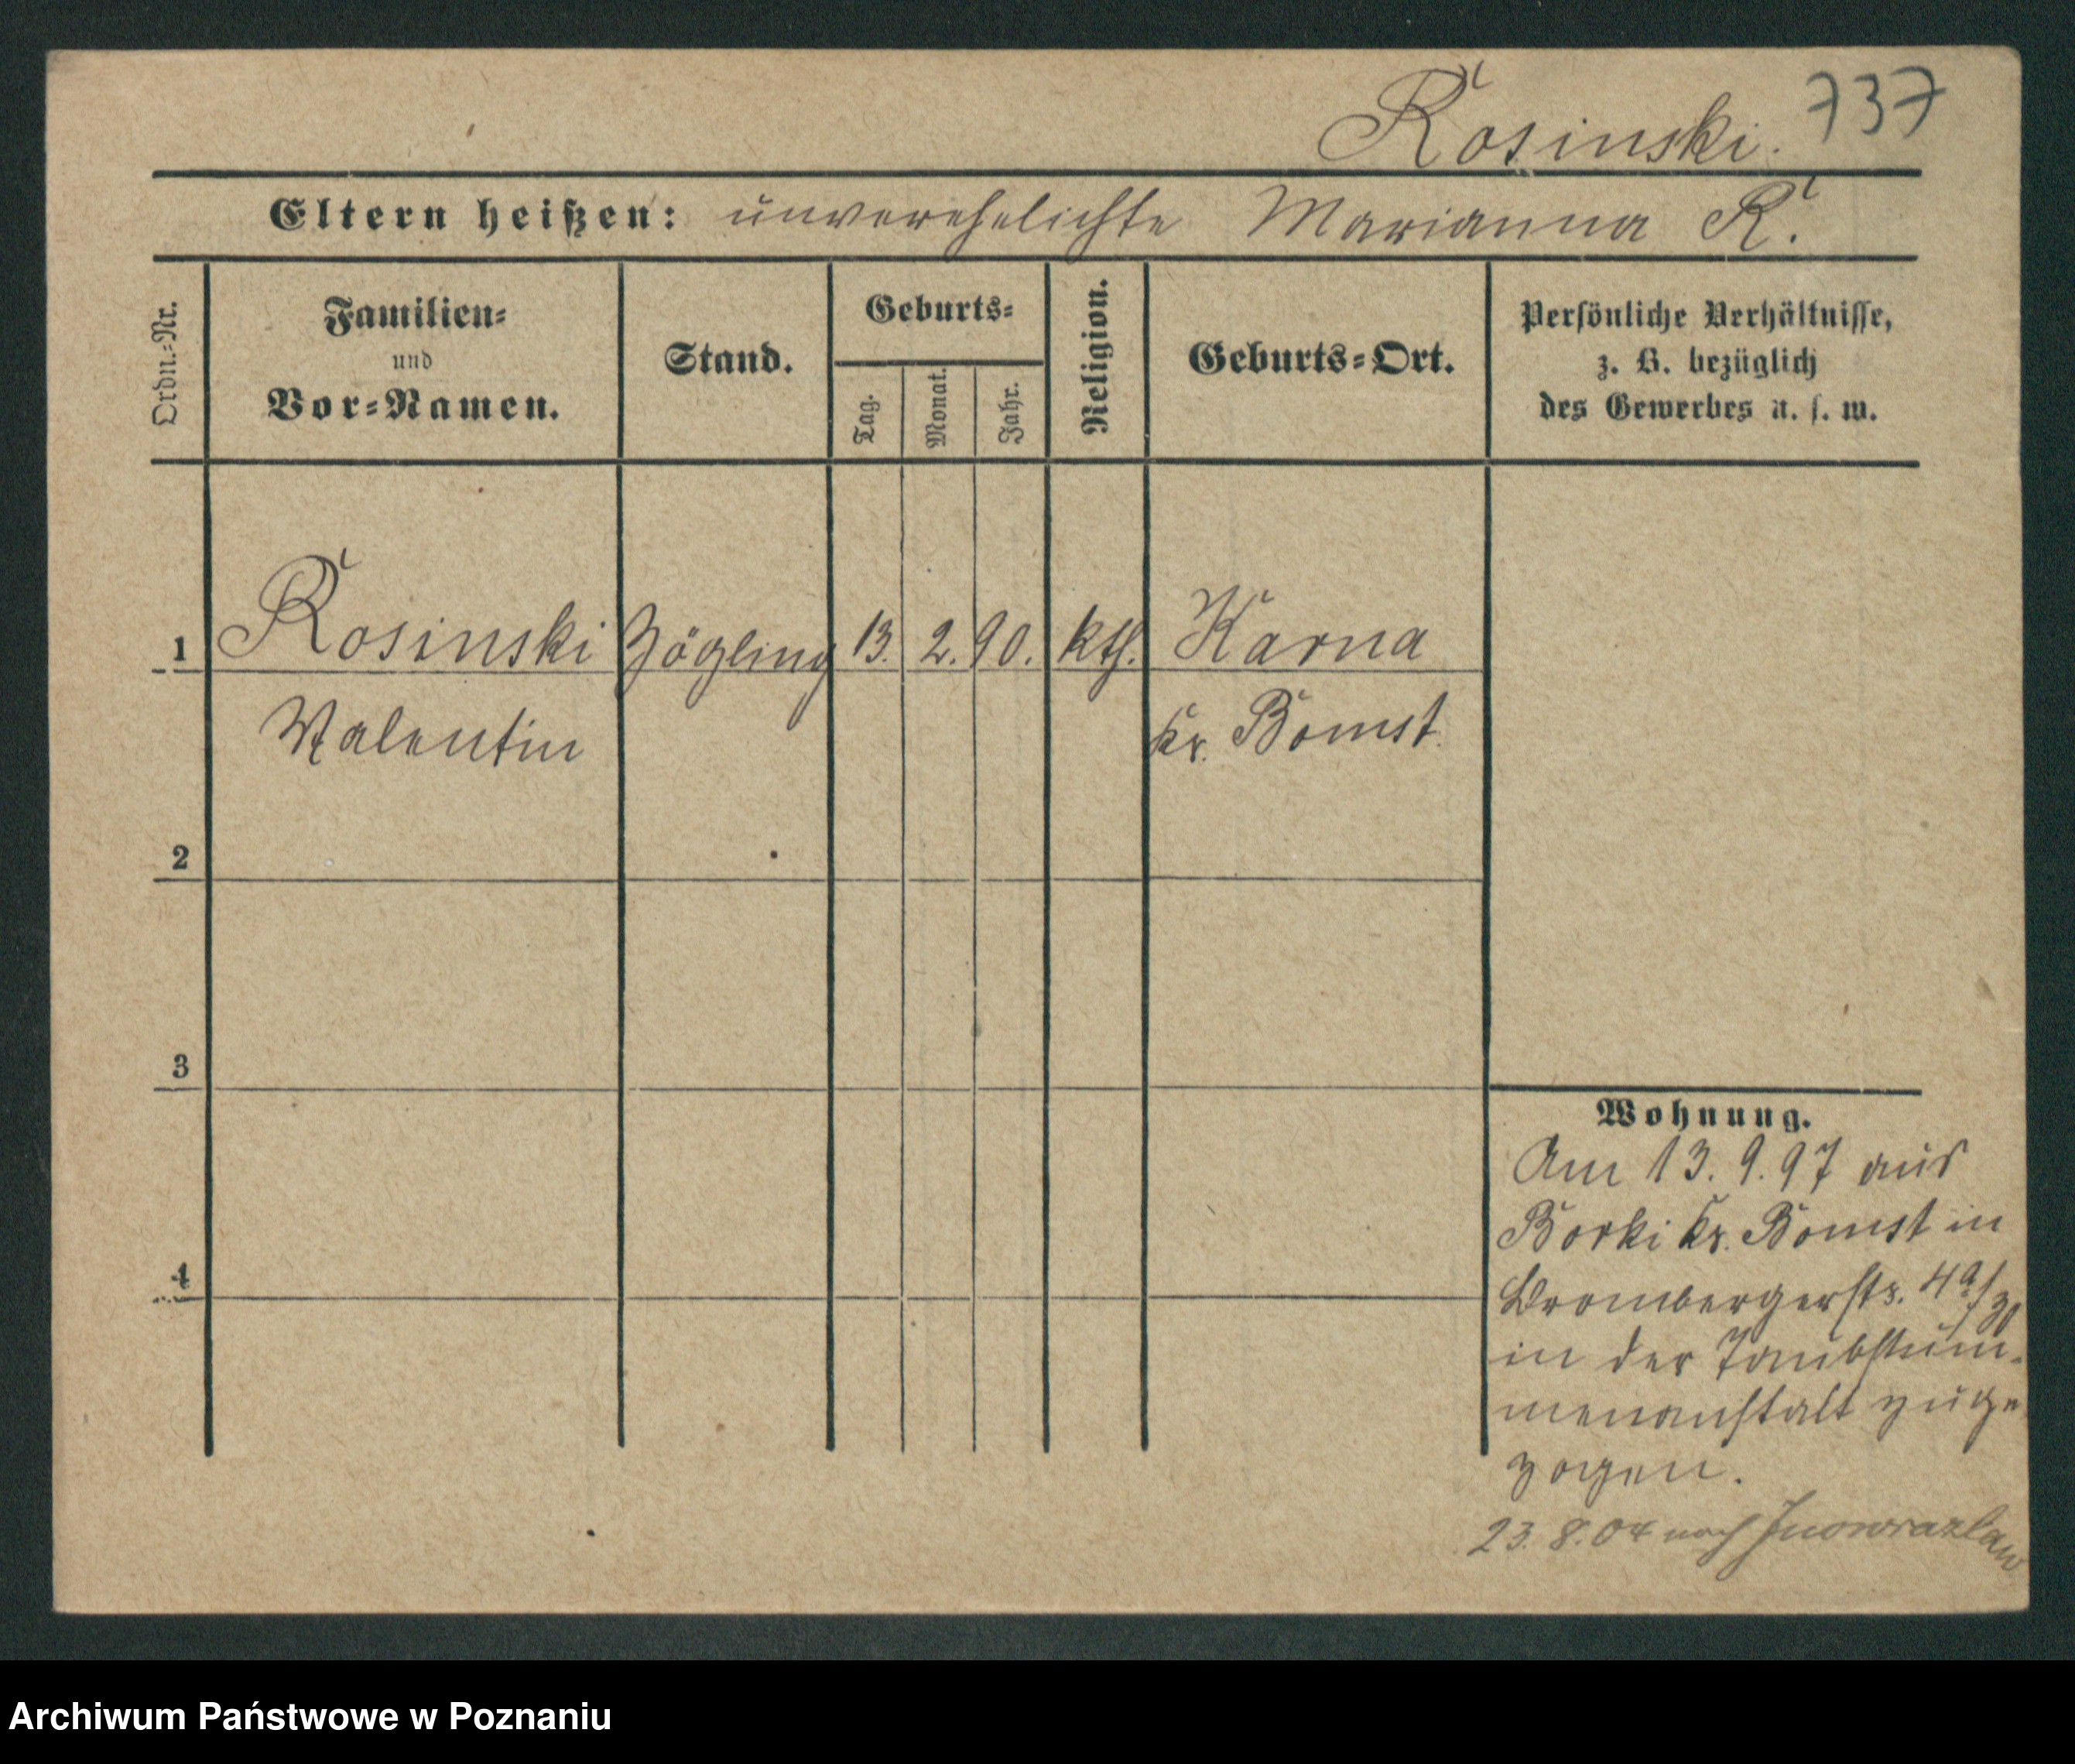 Rosinski. 737
Eltern heißen: unverehelichte Marianna R.
Ordn.=Nr.
Familien=
und
Vor=Namen.
Stand.
Geburts=
Tag.
Monat.
Jahr.
Religion.
Geburts=Ort.
Persönliche Verhältnisse,
z. B. bezüglich
des Gewerbes u. s. w.
1 Rosinski Zögling 13. 2. 90. kth. Karna
Valentin Kr. Bomst.
2
3
4
Wohnung.
Am 13. 9. 97 aus
Borki Kr. Bomst in
Brombergerstr. 4a/
in der Taubstum-
menanstalt zuge
zogen.
23. 8. 04 nach Inowrazlaw
Archiwum Państwowe w Poznaniu